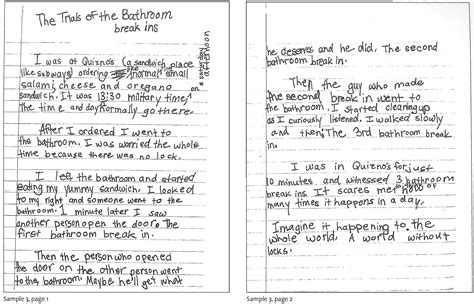 The Trials of the Bathroom
break ins
I was at Quizno's (a sandwich place
like subways) ordering the normal small
salami, cheese and oregano
sandwich. It was 13:30 military time,
the time and day I normally go there.
a saturday
afternoon
After I ordered I went to
the bathroom. I was worried the whole
time because there was no lock.
I left the bathroom and started
eating my yummy sandwich. I looked
to my right and someone went to the
bathroom. 1 minute later I saw
another person open the door. The
first bathroom break in.
Then the person who opened
the door on the other person went
to the bathroom. Maybe he'll get what
Sample 3, page 1
he deserves and he did. The second
bathroom break in.
Then the guy who made
the second break in went to
the bathroom. I started clearing up
as I curiously listened. I walked slowly
and then, The 3rd bathroom break
in.
I was in Quizno's for just
10 minutes and witnessed 3 bathroom
break ins. It scares me how
many times it happens in a day.
Imagine it happening to the
whole world. A world without
locks.
Sample 3, page 2